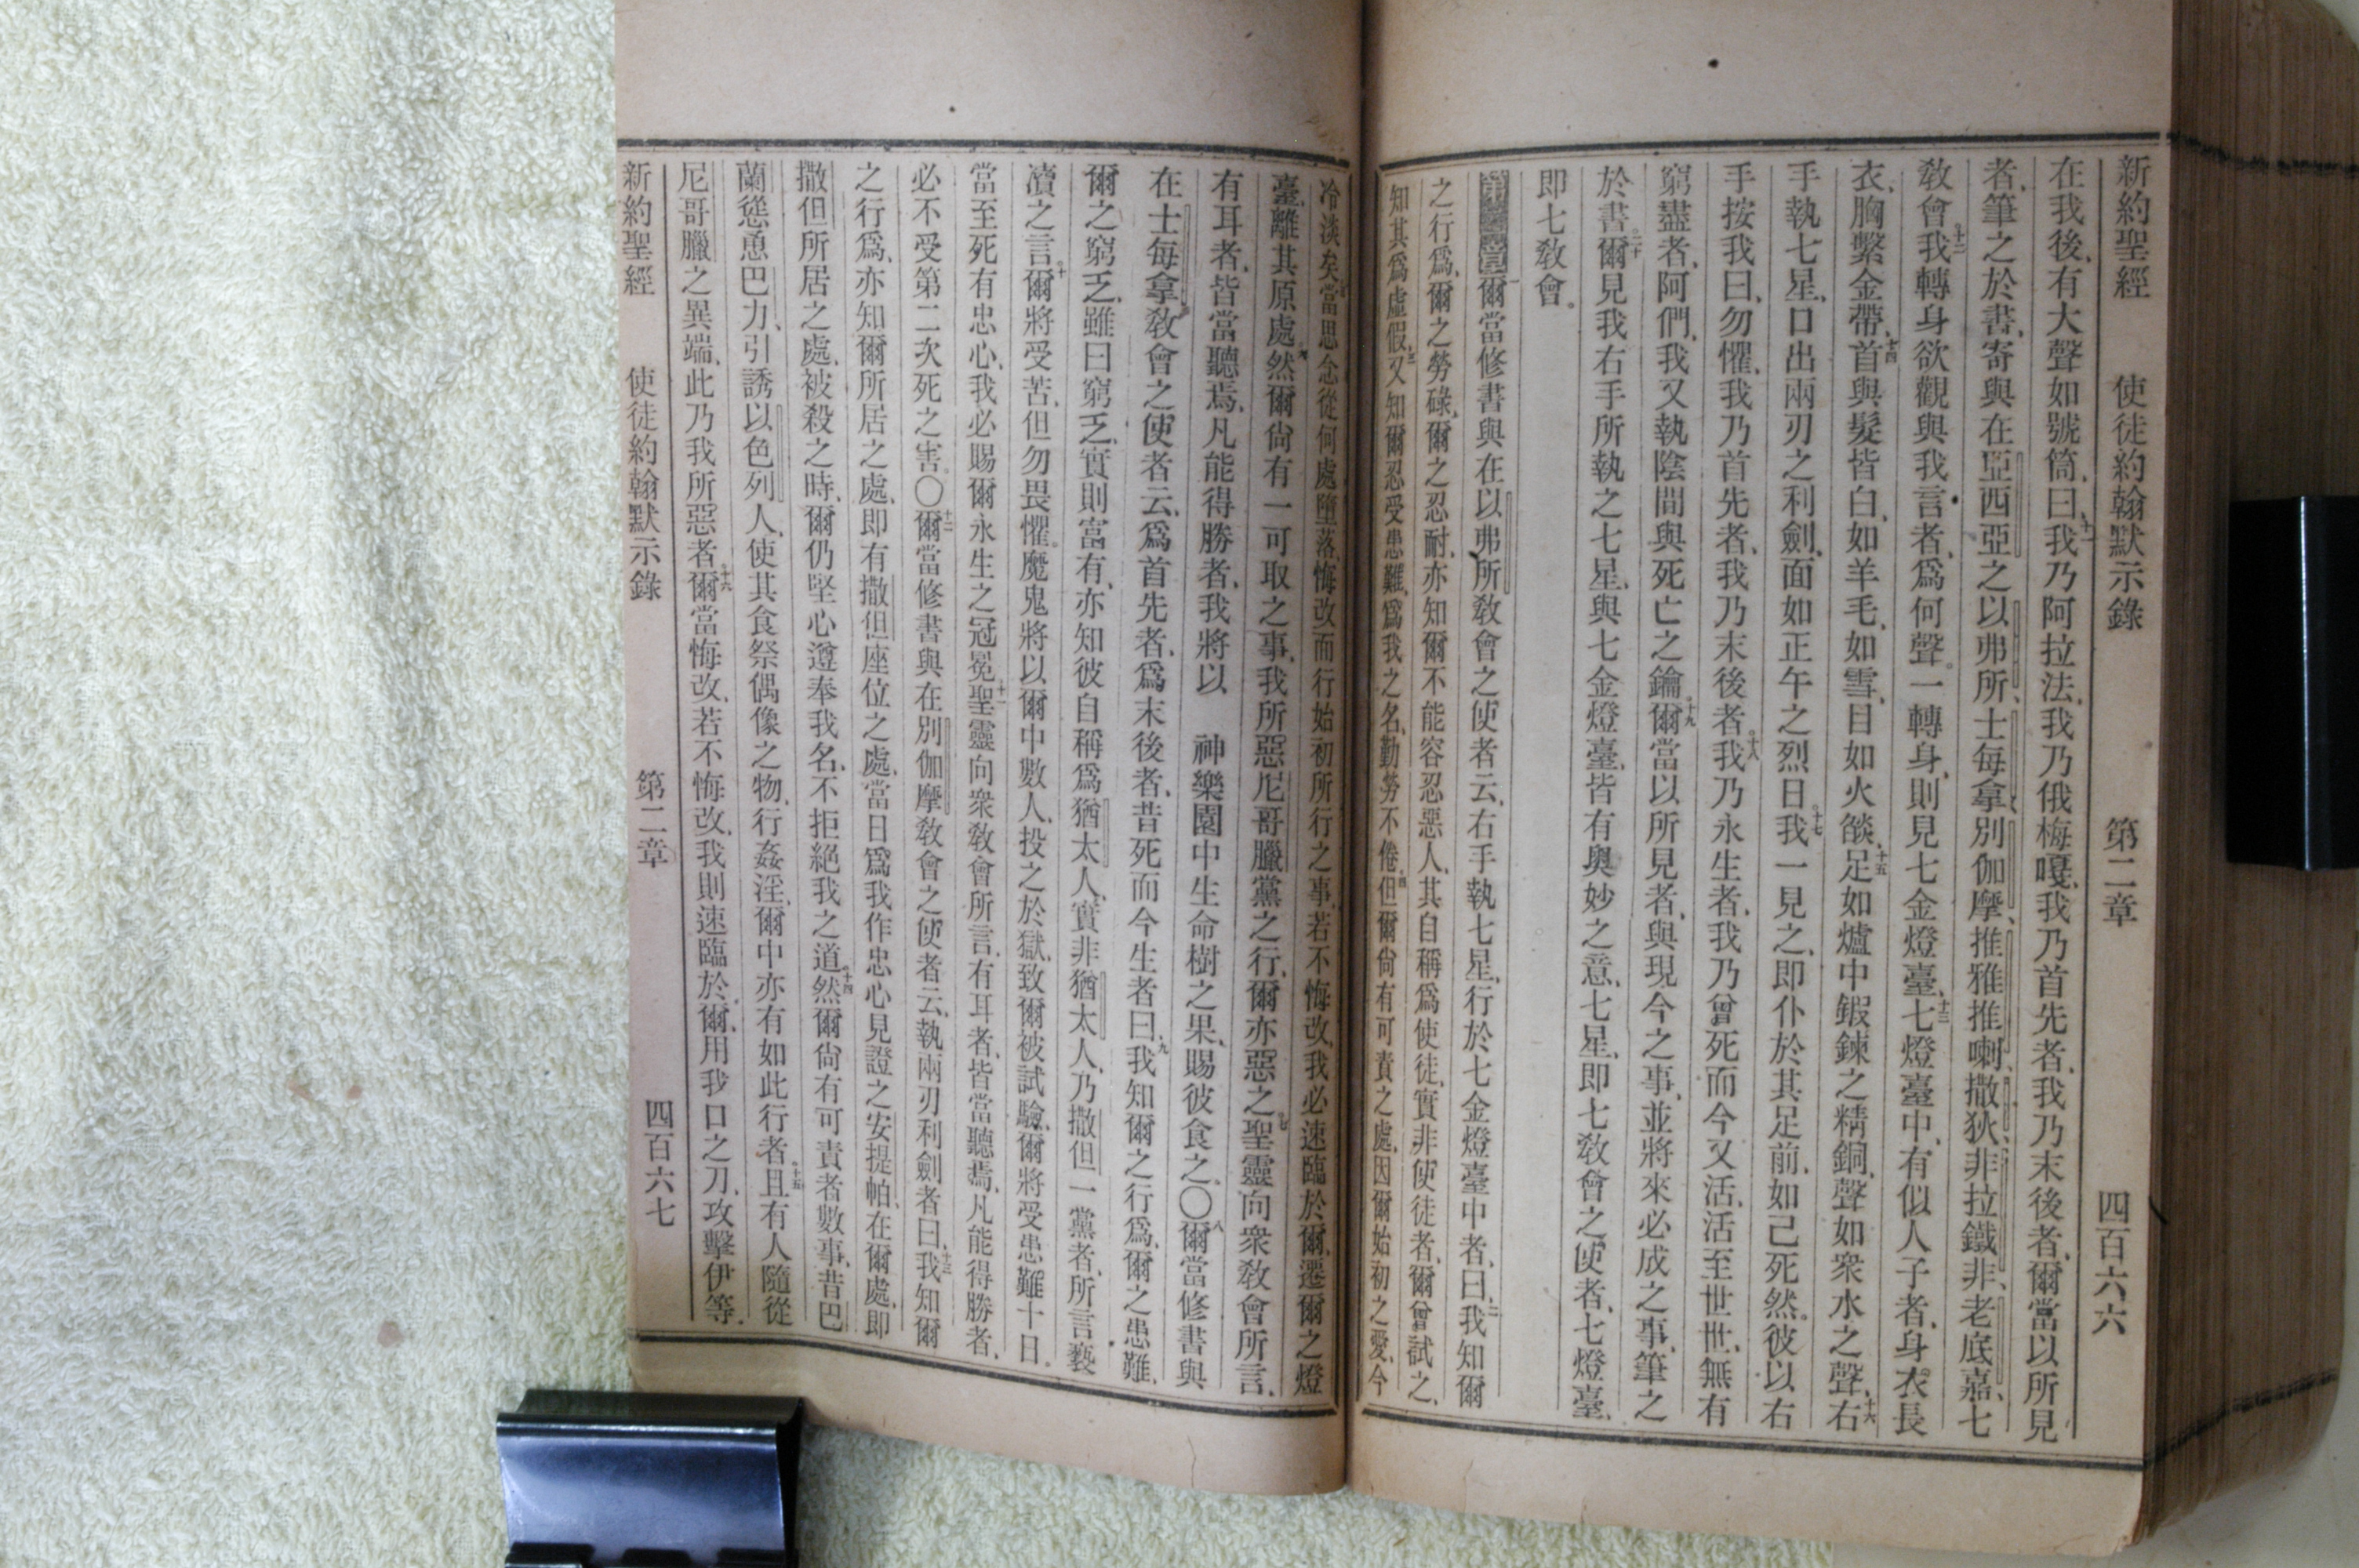 新約聖經　使徒約翰默示錄　第二章　四百六六
在我後、有大聲如號筒、曰、十一我乃阿拉法、我乃俄梅嘎、我乃首先者、我乃末後者、爾當以所見
者、筆之於書、寄與在亞西亞之以弗所、士每拿、別伽摩、推雅推喇、撒狄、非拉鐵非、老底嘉、七
敎會。十二我轉身欲觀與我言者、爲何聲。一轉身、則見七金燈臺、十三七燈臺中、有似人子者、身衣長
衣、胸繫金帶、十四首與髮皆白、如羊毛、如雪、目如火燄、十五足如爐中鍜鍊之精銅、聲如衆水之聲、十六右
手執七星、口出兩刃之利劍、面如正午之烈日。十七我一見之、即仆於其足前、如已死然。彼以右
手按我曰、勿懼、我乃首先者、我乃末後者。十八我乃永生者、我乃曾死而今又活、活至世世、無有
窮盡者、阿們、我又執陰間與死亡之鑰。十九爾當以所見者、與現今之事、並將來必成之事、筆之
於書。二十爾見我右手所執之七星、與七金燈臺、皆有奧妙之意、七星、即七敎會之使者、七燈臺、
即七敎會。
第二章一爾當修書與在以弗所敎會之使者云、右手執七星、行於七金燈臺中者、曰、二我知爾
之行爲、爾之勞碌、爾之忍耐、亦知爾不能容忍惡人、其自稱爲使徒、實非使徒者、爾曾試之、
知其爲虛假、三又知爾忍受患難、爲我之名、勤勞不倦。四但爾尙有可責之處、因爾始初之愛、今
冷淡矣、五當思念從何處墮落、悔改而行始初所行之事、若不悔改、我必速臨於爾、遷爾之燈
臺、離其原處、六然爾尙有一可取之事、我所惡尼哥臘黨之行、爾亦惡之。七聖靈向衆敎會所言、
有耳者、皆當聽焉、凡能得勝者、我將以　神樂園中生命樹之果、賜彼食之、〇八爾當修書與
在士每拿敎會之使者云、爲首先者、爲末後者、昔死而今生者曰、九我知爾之行爲、爾之患難、
爾之窮乏、雖曰窮乏、實則富有、亦知彼自稱爲猶太人、實非猶太人、乃撒但一黨者、所言褻
瀆之言。十爾將受苦、但勿畏懼。魔鬼將以爾中數人、投之於獄、致爾被試驗、爾將受患難十日。
當至死有忠心、我必賜爾永生之冠冕。十一聖靈向衆敎會所言、有耳者、皆當聽焉、凡能得勝者、
必不受第二次死之害。〇十二爾當修書與在別伽摩敎會之使者云、執兩刃利劍者曰、十三我知爾
之行爲、亦知爾所居之處、即有撒但座位之處、當日爲我作忠心見證之安提帕、在爾處、即
撒但所居之處、被殺之時、爾仍堅心遵奉我名、不拒絕我之道。十四然爾尙有可責者數事、昔巴
蘭慫恿巴力、引誘以色列人、使其食祭偶像之物、行姦淫、爾中亦有如此行者。十五且有人隨從
尼哥臘之異端、此乃我所惡者。十六爾當悔改、若不悔改、我則速臨於爾、用我口之刀、攻擊伊等。
新約聖經　使徒約翰默示錄　第二章　四百六七